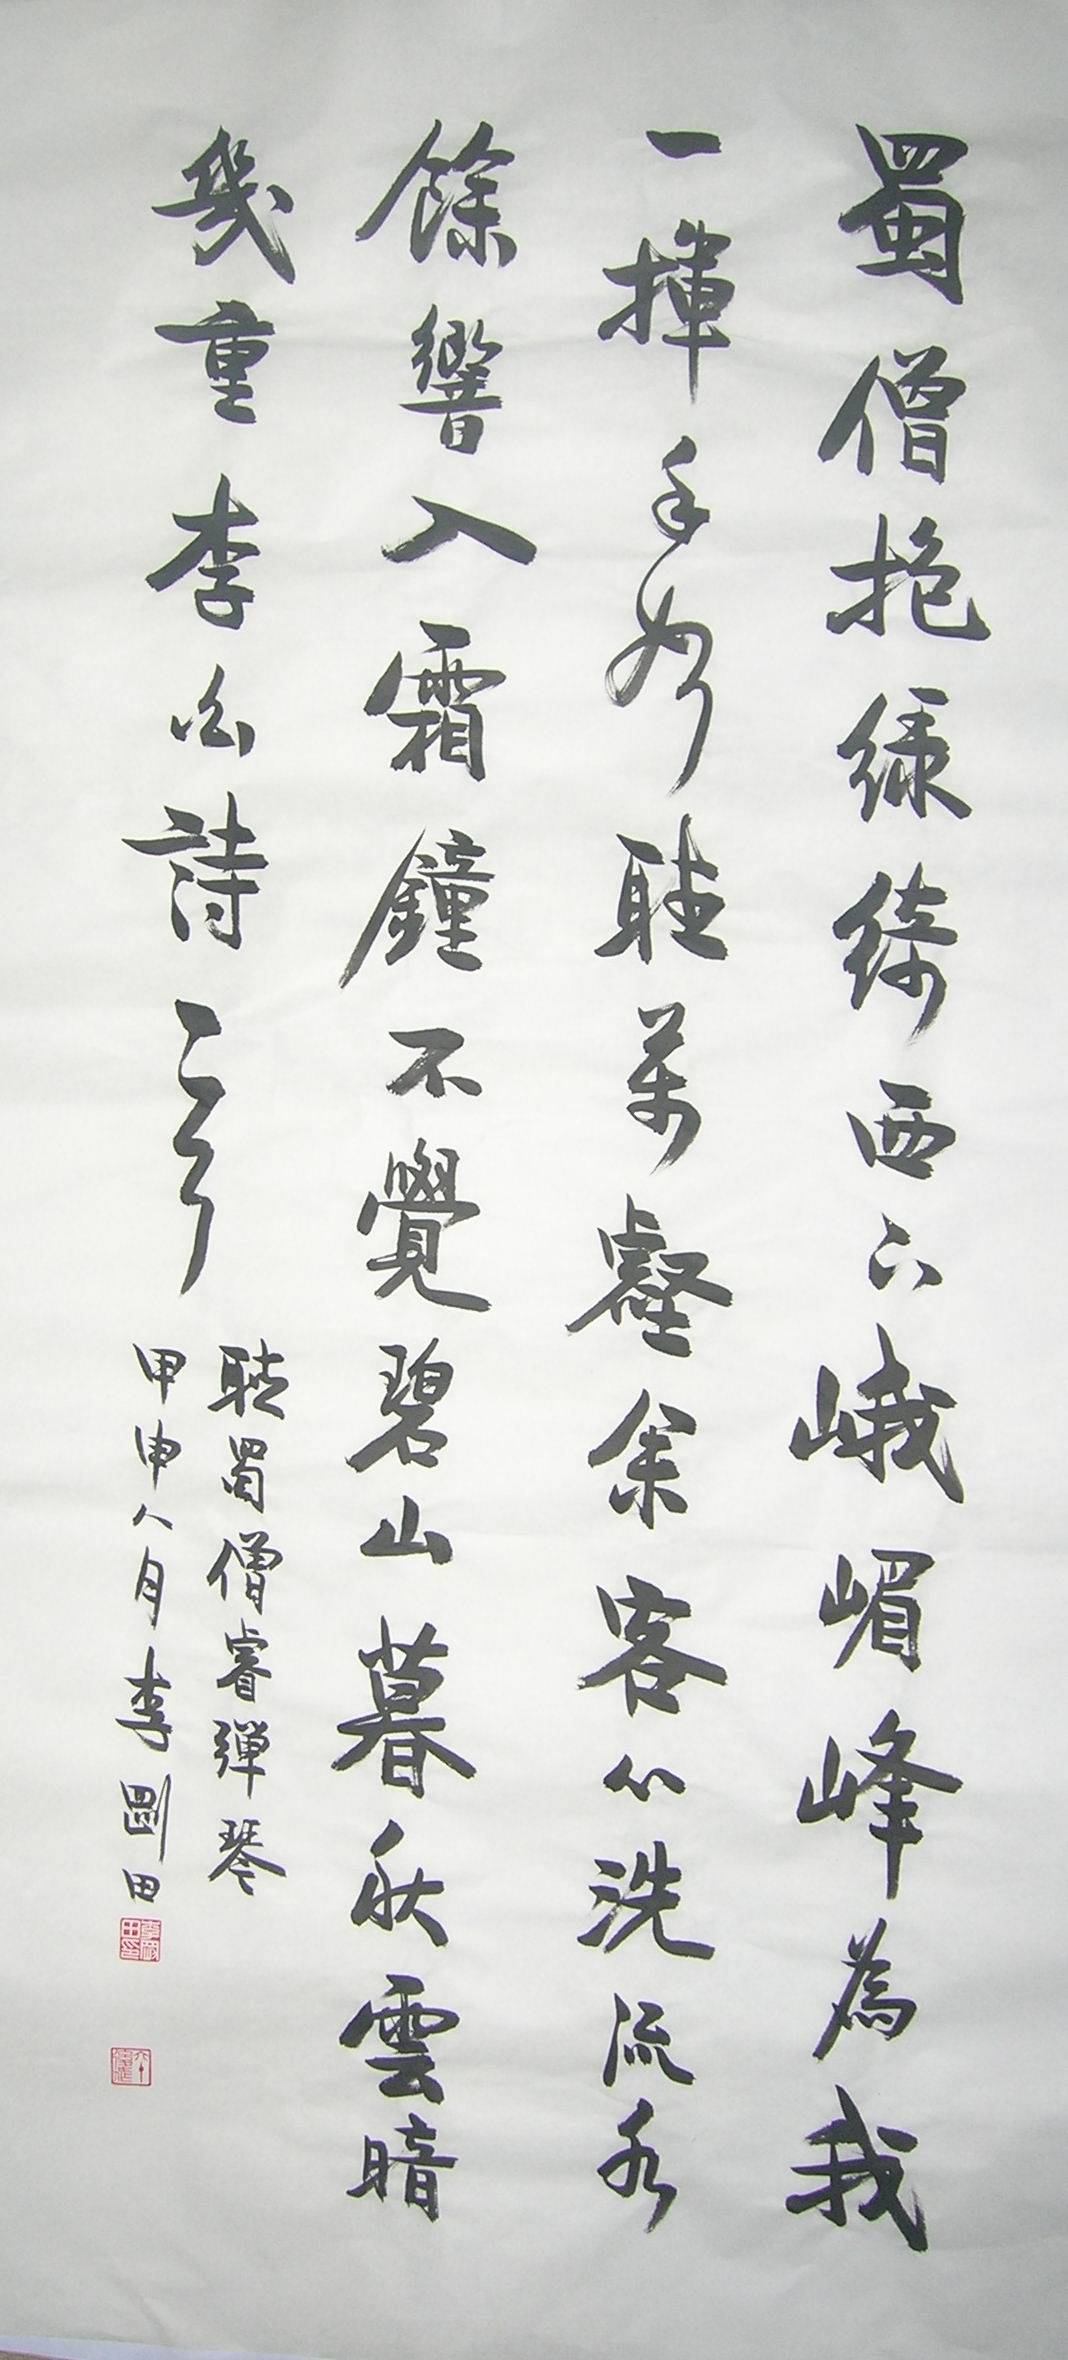 蜀僧抱綠綺西下峨嵋峰為我
一揮手如聽萬壑松客心洗流水
餘響入霜鐘不覺碧山暮秋雲暗
幾重李白詩一首
聽蜀僧睿彈琴
甲申八月李剛田
李剛田印